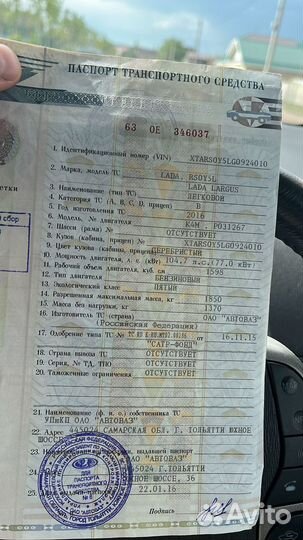 ПАСПОРТ ТРАНСПОРТНОГО СРЕДСТВА
63 ОЕ 346037
1. Идентификационный номер (VIN) XTARS0Y5LG0924010
2. Марка, модель ТС LADA, RS0Y5L
3. Наименование (тип ТС) LADA LARGUS ЛЕГКОВОЙ
4. Категория ТС (А, В, С, D, прицеп) B
5. Год изготовления ТС 2016
6. Модель, № двигателя K4M P031267
7. Шасси (рама) № ОТСУТСТВУЕТ
8. Кузов (кабина, прицеп) № XTARS0Y5LG0924010
9. Цвет кузова (кабины, прицепа) СЕРЕБРИСТЫЙ
10. Мощность двигателя, л. с. (кВт) 104.7 л.с.(77.0 кВт)
11. Рабочий объем двигателя, куб. см 1598
12. Тип двигателя БЕНЗИНОВЫЙ
13. Экологический класс ПЯТЫЙ
14. Разрешенная максимальная масса, кг 1850
15. Масса без нагрузки, кг 1370
16. Изготовитель ТС (страна) ОАО "АВТОВАЗ"
(Российская Федерация)
17. Одобрение типа ТС № от 16.11.15
"САТР-ФОНД"
18. Страна вывоза ТС ОТСУТСТВУЕТ
19. Серия, № ТД, ТПО ОТСУТСТВУЕТ
20. Таможенные ограничения ОТСУТСТВУЕТ
21. Наименование (ф. и. о.) собственника ТС
УПиКП ОАО "АВТОВАЗ"
22. Адрес 445024 САМАРСКАЯ ОБЛ. Г. ТОЛЬЯТТИ ЮЖНОЕ
ШОССЕ
23. Наименование организации, выдавшей паспорт
ОАО "АВТОВАЗ"
24. 445024 Г.ТОЛЬЯТТИ
ЮЖНОЕ ШОССЕ, 36
25. Дата выдачи паспорта 22.01.16
Подпись
ДЛЯ
ПАСПОРТА
ТРАНСПОРТНОГО
СРЕДСТВА
Avito